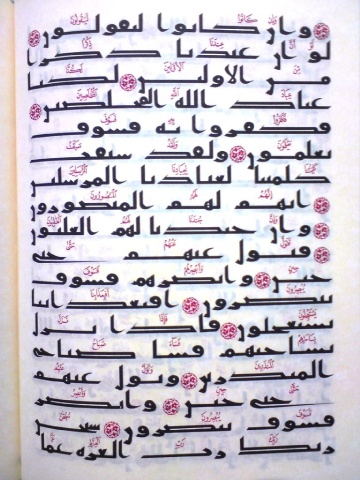 وان كانوا ليقولون
لو ان عندنا ذكرا
من الاولين لكنا
عباد الله المخلصين
فكفروا به فسوف
يعلمون ولقد سبقت
كلمتنا لعبادنا المرسلين
انهم لهم المنصورون
وان جندنا لهم الغلبون
فتول عنهم حتى
حين وابصرهم فسوف
يبصرون افبعذابنا
يستعجلون فاذا نزل
بساحتهم فسا صباح
المنذرين وتول عنهم
حتى حين وابصر
فسوف يبصرون سبحن
ربك رب العزه عما